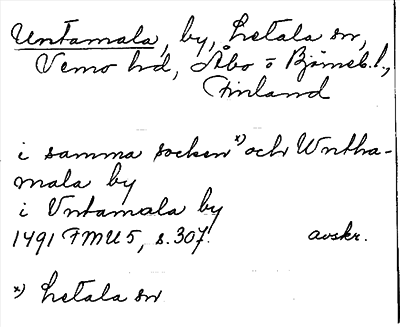 Untamala, by, Letala sn,
Vemo hd, Åbo o Björneb. l.,
Finland
i samma socken x) och Wntha-
mala by
i Vntamala by
1491 FMU 5, s. 307. avskr.
x) Letala sn